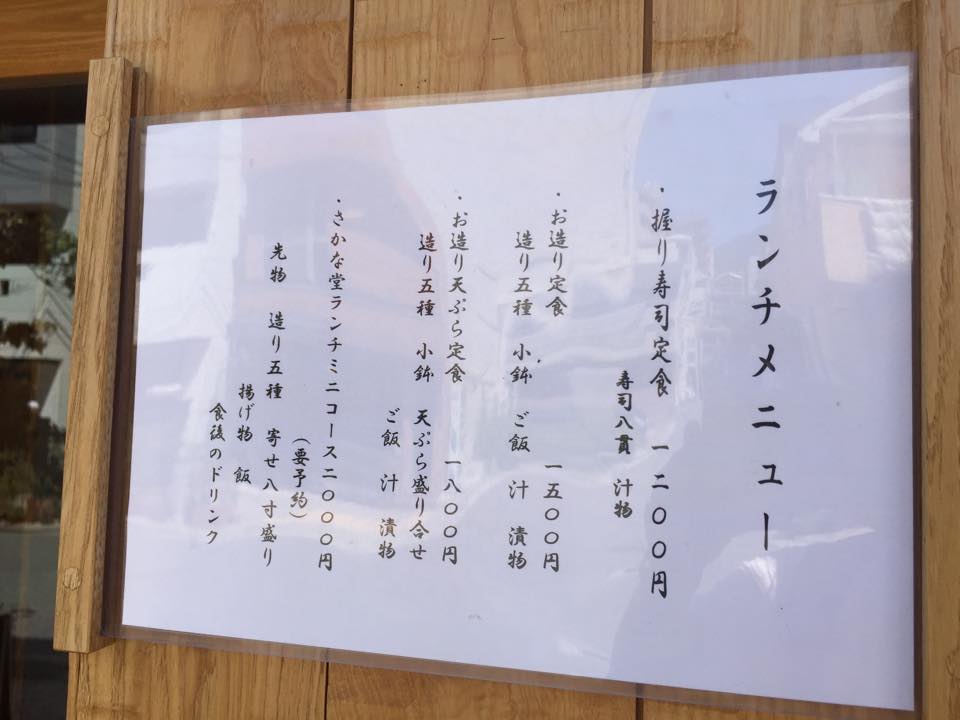 ランチメニュー
・握り寿司定食 一二〇〇円
寿司八貫 汁物
・お造り定食 一五〇〇円
造り五種 小鉢 ご飯 汁 漬物
・お造り天ぷら定食 一八〇〇円
造り五種 小鉢 天ぷら盛り合せ
ご飯 汁 漬物
・さかな堂ランチミニコース二〇〇〇円
（要予約）
先物 造り五種 寄せ八寸盛り
揚げ物 飯
食後のドリンク